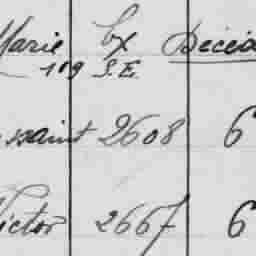 Marie bx Décéd
109 S.E
ssaint 2608 6
Victor 2667 6